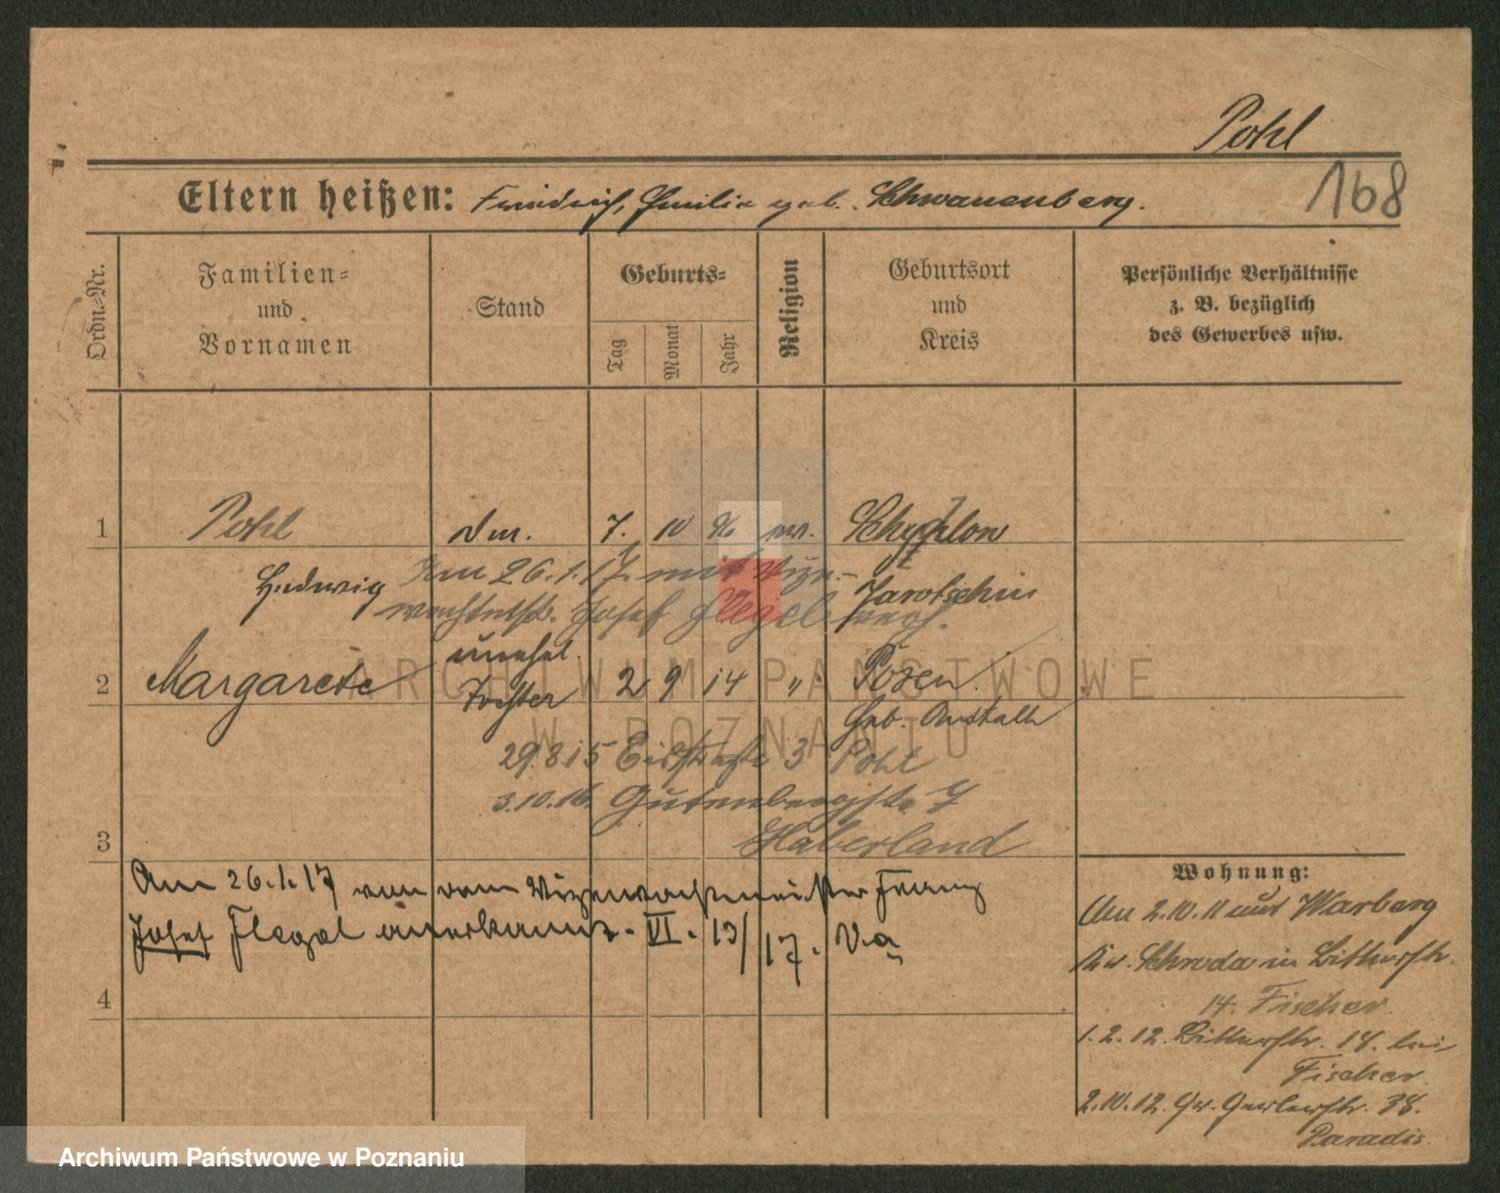 Pohl
168
Eltern heißen: Friedrich, Emilie geb. Schwanenberg.
Ordn.-Nr.
Familien- und Vornamen
Stand
Geburts-
Tag
Monat
Jahr
Religion
Geburtsort und Kreis
Persönliche Verhältnisse z. B. bezüglich des Gewerbes usw.
1 Pohl 7. 10 96
Hedwig Jarotschin
Am 26.1.17. mit Vize-
wachtmstr. Josef Flegel verh.
unehel.
2 Margarete Tochter 2 9 14 " Posen
Geb. Anstalt
29.8.15 3 Pohl
3.10.16. Gutenbergstr. 7
Haberland
3
Am 26.1.17 von dem Vizewachtmeister Franz
Josef Flegel anerkannt. VI. 13/17.
4
Wohnung:
Am 2.10.11 aus Warberg
Kr. Schroda in Bitterstr.
14. Fischer.
1.2.12. Bitterstr. 14. bei
Fischer.
2.10.12. Gr. Gerberstr. 38.
Paradis.
ARCHIWUM PAŃSTWOWE
W POZNANIU
Archiwum Państwowe w Poznaniu